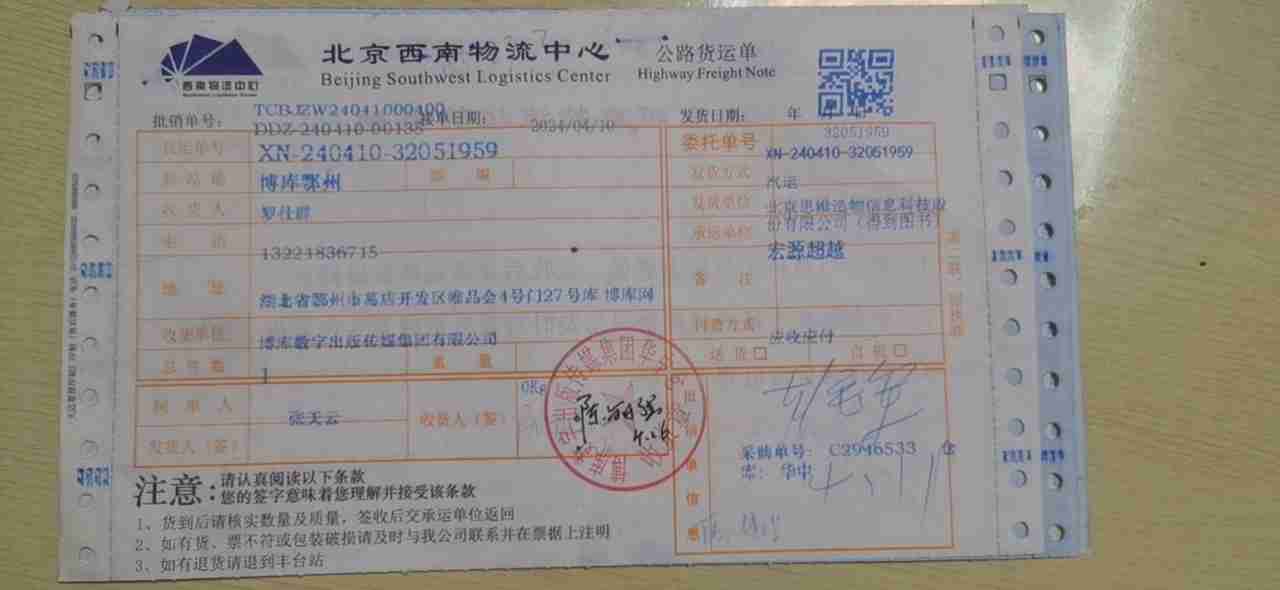 北京西南物流中心
Beijing Southwest Logistics Center
公路货运单
Highway Freight Note
西南物流中心
批销单号: TCBJZW24041000400
DDZ-240410-00135
接单日期: 2024/04/10
发货日期: 年 月 日
XN-240410-32051959
委托单号 32051959
XN-240410-32051959
到站地 博库鄂州
发货方式 汽运
收货人 罗仕群
发货单位 北京思维造物信息科技股
份有限公司(得到图书)
电话 13221836715
承运单位 宏源超越
地址 湖北省鄂州市葛店开发区唯品会4号门127号库 博库网
备注
收货单位 博库数字出版传媒集团有限公司
付费方式 应收应付
总件数 1
重量 0Kg
送货 自提
制单人 张天云
收货人(签)
陈
4.26
发货人(签)
采购单号: C2946533 仓
库: 华中
4.11
单信息
注意:
请认真阅读以下条款
您的签字意味着您理解并接受该条款
1、货到后请核实数量及质量,签收后交承运单位返回
2、如有货、票不符或包装破损请及时与我公司联系并在票据上注明
3、如有退货请退到丰台站